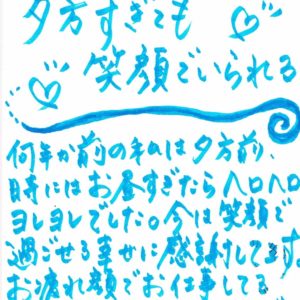 夕方すぎても
笑顔でいられる
何年か前の私は夕方前、
時にはお昼すぎたらヘロヘロ
ヨレヨレでした。今は笑顔で
過ごせる幸せに感謝してます。
お疲れ顔でお仕事してる